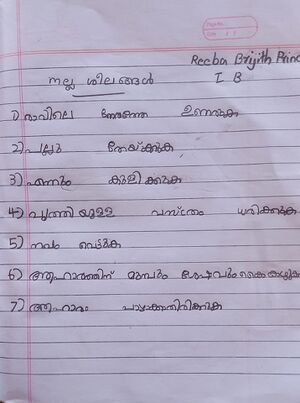 Reeba Brijith Princ
നല്ല ശീലങ്ങൾ I B
1) രാവിലെ നേരത്തെ ഉണരുക
2) പല്ലു തേയ്ക്കുക
3) എന്നും കുളിക്കുക
4) വൃത്തിയുള്ള വസ്ത്രം ധരിക്കുക
5) നഖം വെട്ടുക
6) ആഹാരത്തിന് മുമ്പും ശേഷവും കൈ കഴുകുക
7) ആഹാരം പാഴാക്കാതിരിക്കുക